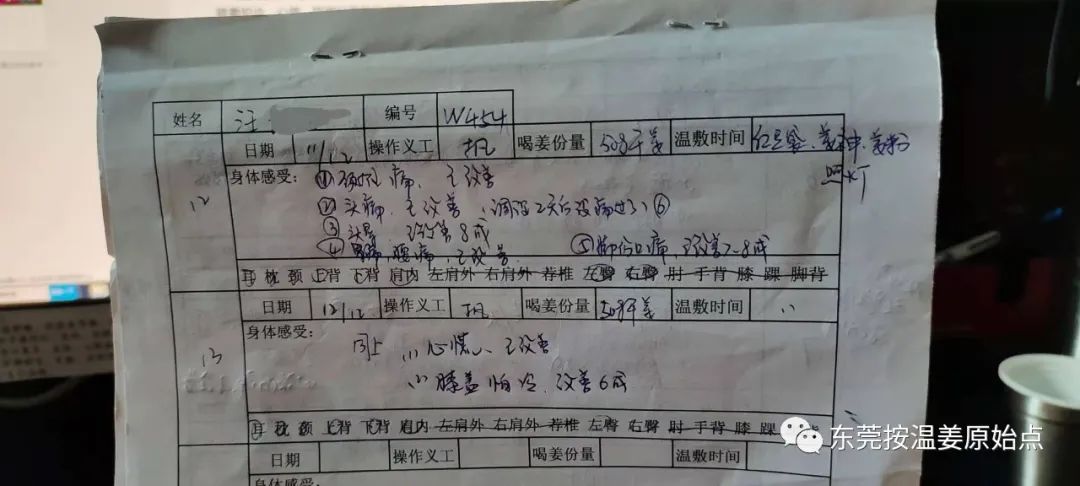 姓名 汪 编号 W454
12 日期 11/12 操作义工 喝姜份量 50g干姜 温敷时间
照灯
身体感受: ① 痛、已改善
②头痛、已改善 (调理2天后没痛过了) ⑥
③头晕 已改善8成
④ 腰痛、已改善 ⑤脚伤口痛,已改善7-8成
耳 枕 颈 上背 下背 肩内 左肩外 右肩外 荐椎 左臀 右臀 肘 手背 膝 踝 脚背
13 日期 12/12 操作义工 喝姜份量 50g干姜 温敷时间 〃
身体感受: 同上 (1)心慌、已改善
(2)膝盖怕冷、改善6成
耳 枕 颈 上背 下背 肩内 左肩外 右肩外 荐椎 左臀 右臀 肘 手背 膝 踝
日期 操作义工 喝姜份量 温敷时间
身体感受:
东莞按温姜原始点